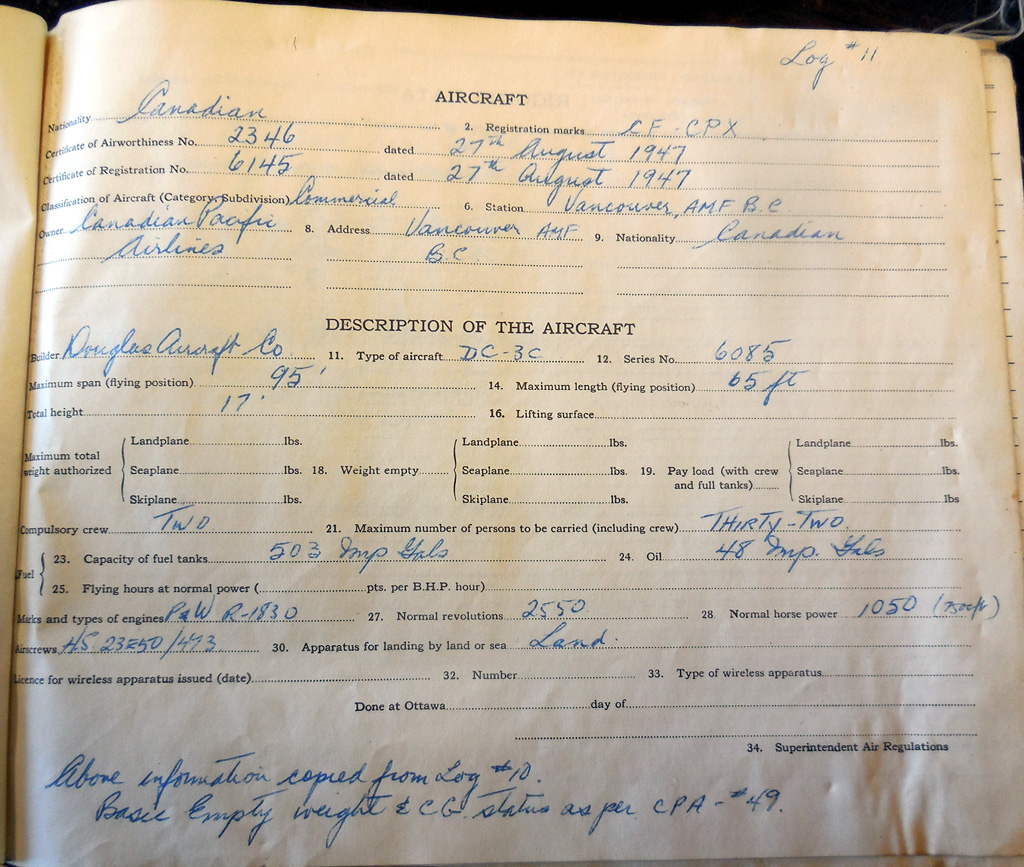 Log #11
AIRCRAFT
Nationality Canadian 2. Registration marks CF-CPX
Certificate of Airworthiness No. 2346 dated 27th August 1947
Certificate of Registration No. 6145 dated 27th August 1947
Classification of Aircraft (Category Subdivision) Commercial 6. Station Vancouver, AMF B.C.
Owner Canadian Pacific 8. Address Vancouver AMF 9. Nationality Canadian
Airlines B.C.
DESCRIPTION OF THE AIRCRAFT
Builder Douglas Aircraft Co 11. Type of aircraft DC-3C 12. Series No. 6085
Maximum span (flying position) 95' 14. Maximum length (flying position) 65 ft
Total height 17' 16. Lifting surface
Landplane lbs. Landplane lbs. Landplane lbs.
Maximum total weight authorized Seaplane lbs. 18. Weight empty Seaplane lbs. 19. Pay load (with crew and full tanks) Seaplane lbs.
Skiplane lbs. Skiplane lbs. Skiplane lbs
Compulsory crew TWO 21. Maximum number of persons to be carried (including crew) THIRTY-TWO.
Fuel 23. Capacity of fuel tanks 503 Imp Gals 24. Oil 48 Imp. Gals
25. Flying hours at normal power ( pts. per B.H.P. hour)
Marks and types of engines P&W R-1830 27. Normal revolutions 2550 28. Normal horse power 1050 (7500ft)
Airscrews HS 23E50/473 30. Apparatus for landing by land or sea Land.
Licence for wireless apparatus issued (date) 32. Number 33. Type of wireless apparatus
Done at Ottawa day of
34. Superintendent Air Regulations
Above information copied from Log #10.
Basic Empty weight & CG status as per CPA-#49.